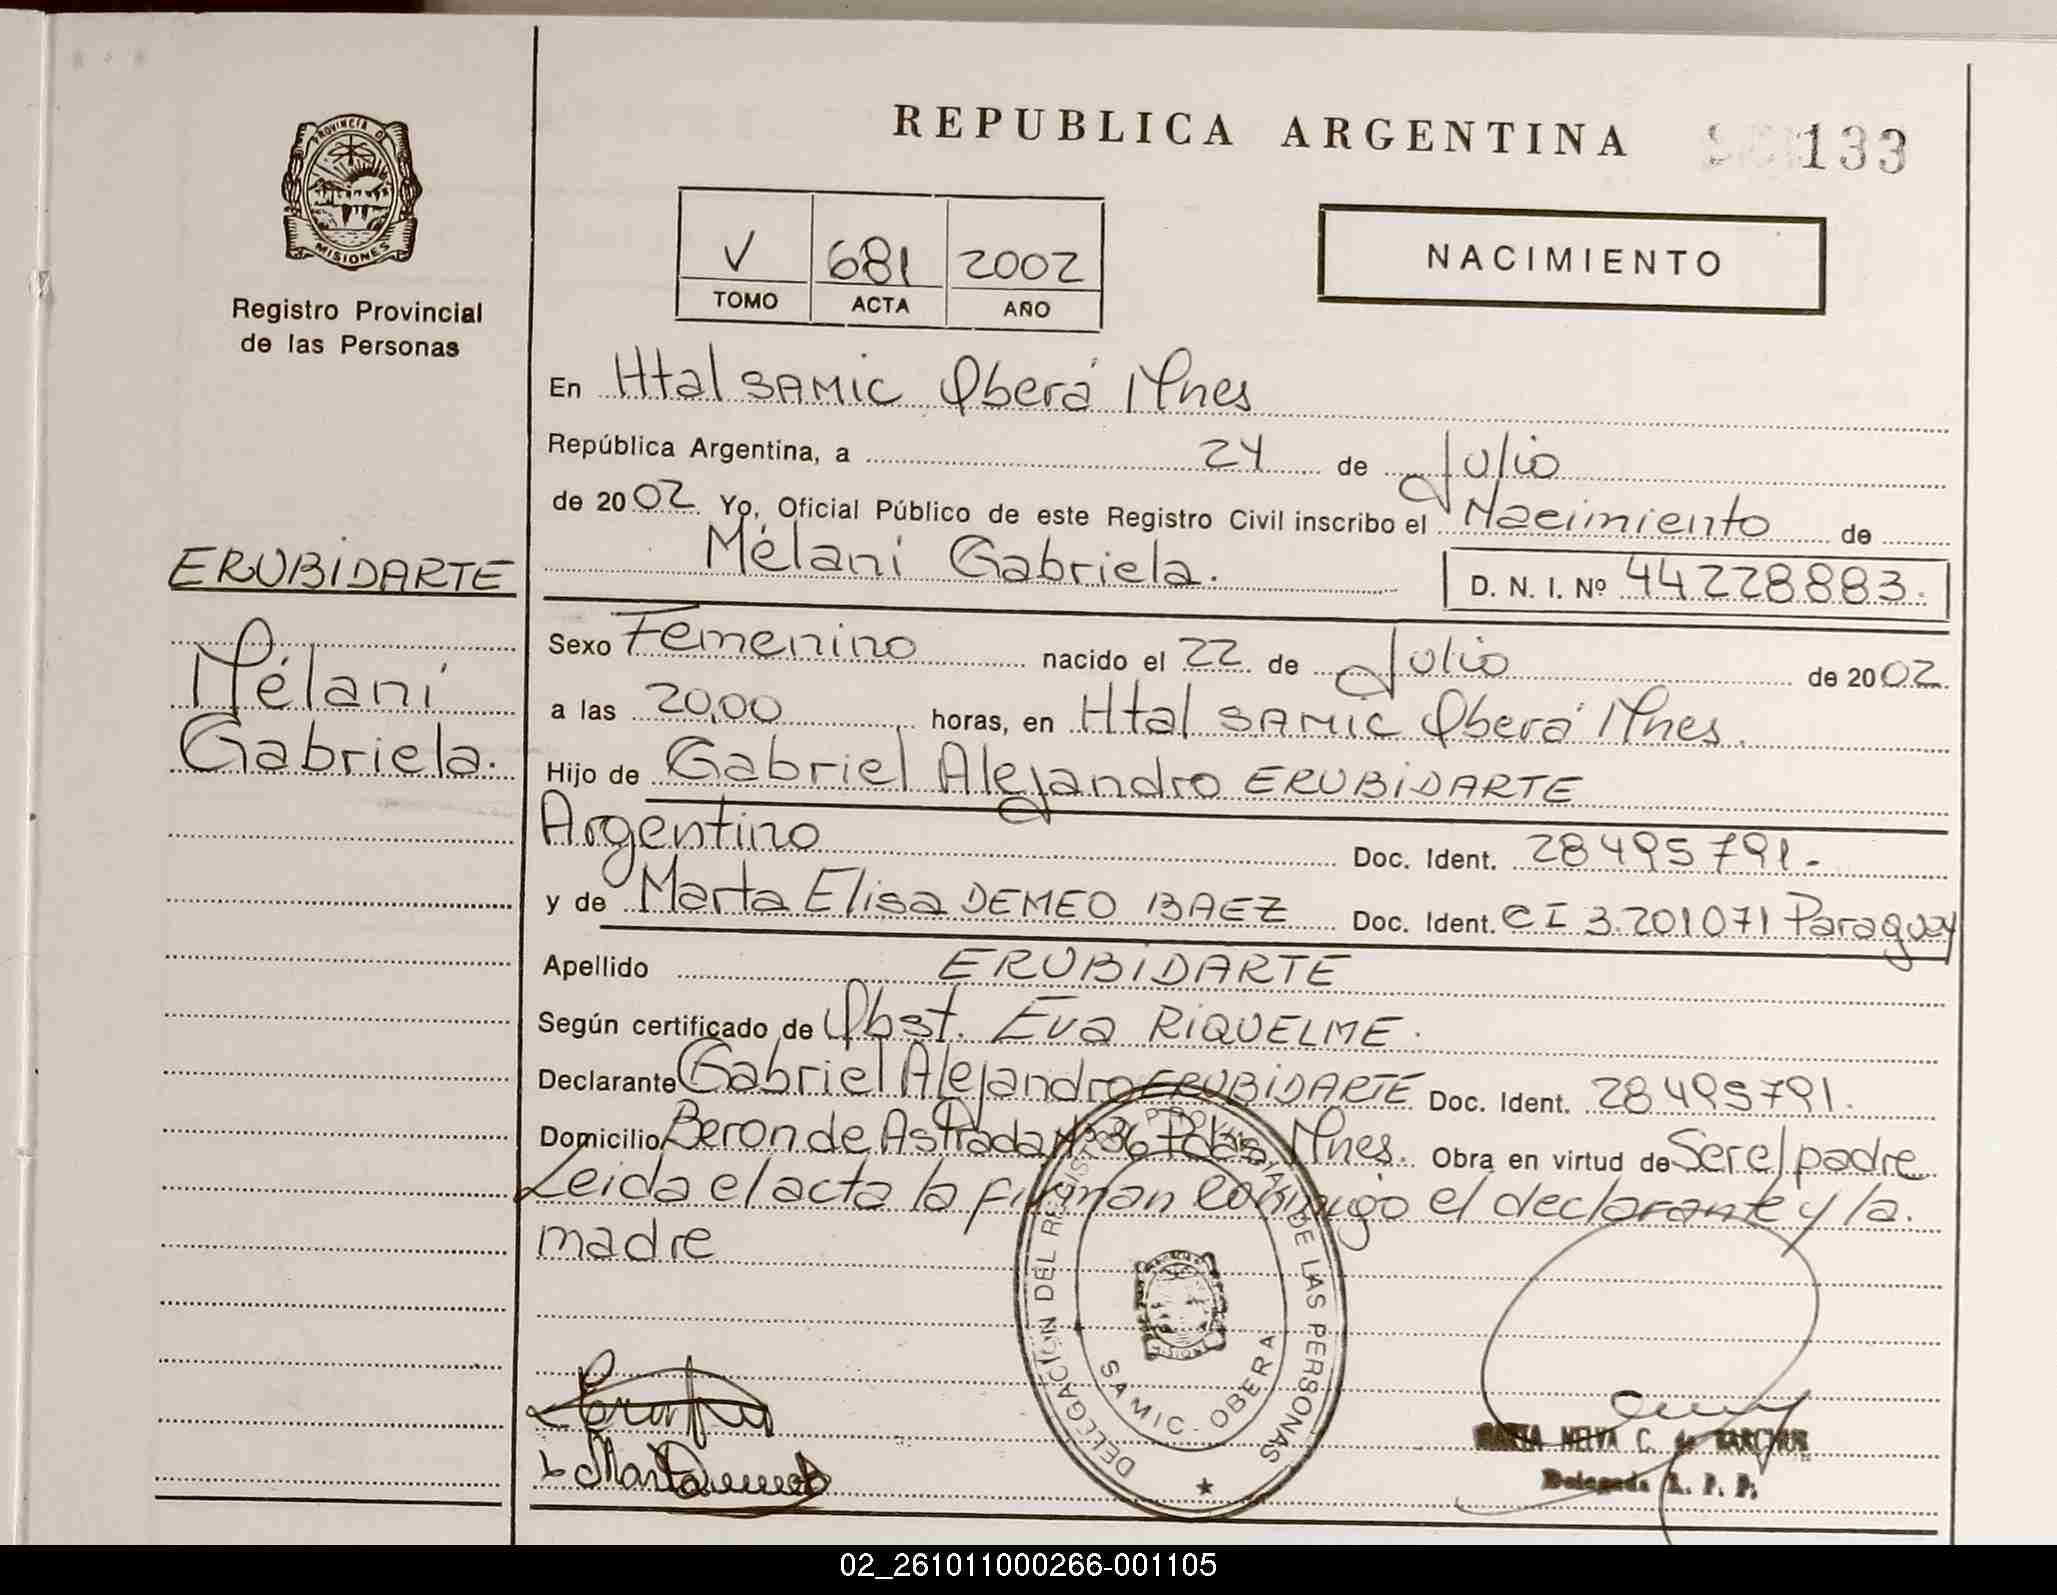 REPUBLICA ARGENTINA
133
PROVINCIA D
MISIONES
Registro Provincial
de las Personas
V 681 2002
TOMO ACTA AÑO
NACIMIENTO
En Htal SAMIC Oberá Mnes
República Argentina, a 24 de Julio
de 2002 Yo, Oficial Público de este Registro Civil inscribo el Nacimiento de
Mélani Gabriela.
D. N. I. Nº 44228883.
ERUBIDARTE
Mélani
Gabriela.
Sexo Femenino nacido el 22 de Julio de 2002
a las 20,00 horas, en Htal SAMIC Oberá Mnes.
Hijo de Gabriel Alejandro ERUBIDARTE
Argentino Doc. Ident. 28495791.-
y de Marta Elisa DEMEO BAEZ Doc. Ident. CI 3.201071 Paraguay
Apellido ERUBIDARTE
Según certificado de Obst. Eva RIQUELME.
Declarante Gabriel Alejandro ERUBIDARTE Doc. Ident. 28495791.
Domicilio Beron de Astrada Nº 36 Pdas Mnes. Obra en virtud de Ser el padre
Leida el acta la firman conmigo el declarante y la.
madre
DELEGACION DEL REGISTRO PROVINCIAL DE LAS PERSONAS
SAMIC. OBERA
MARTA NELVA C. de
Delegada R. P. P.
02_261011000266-001105